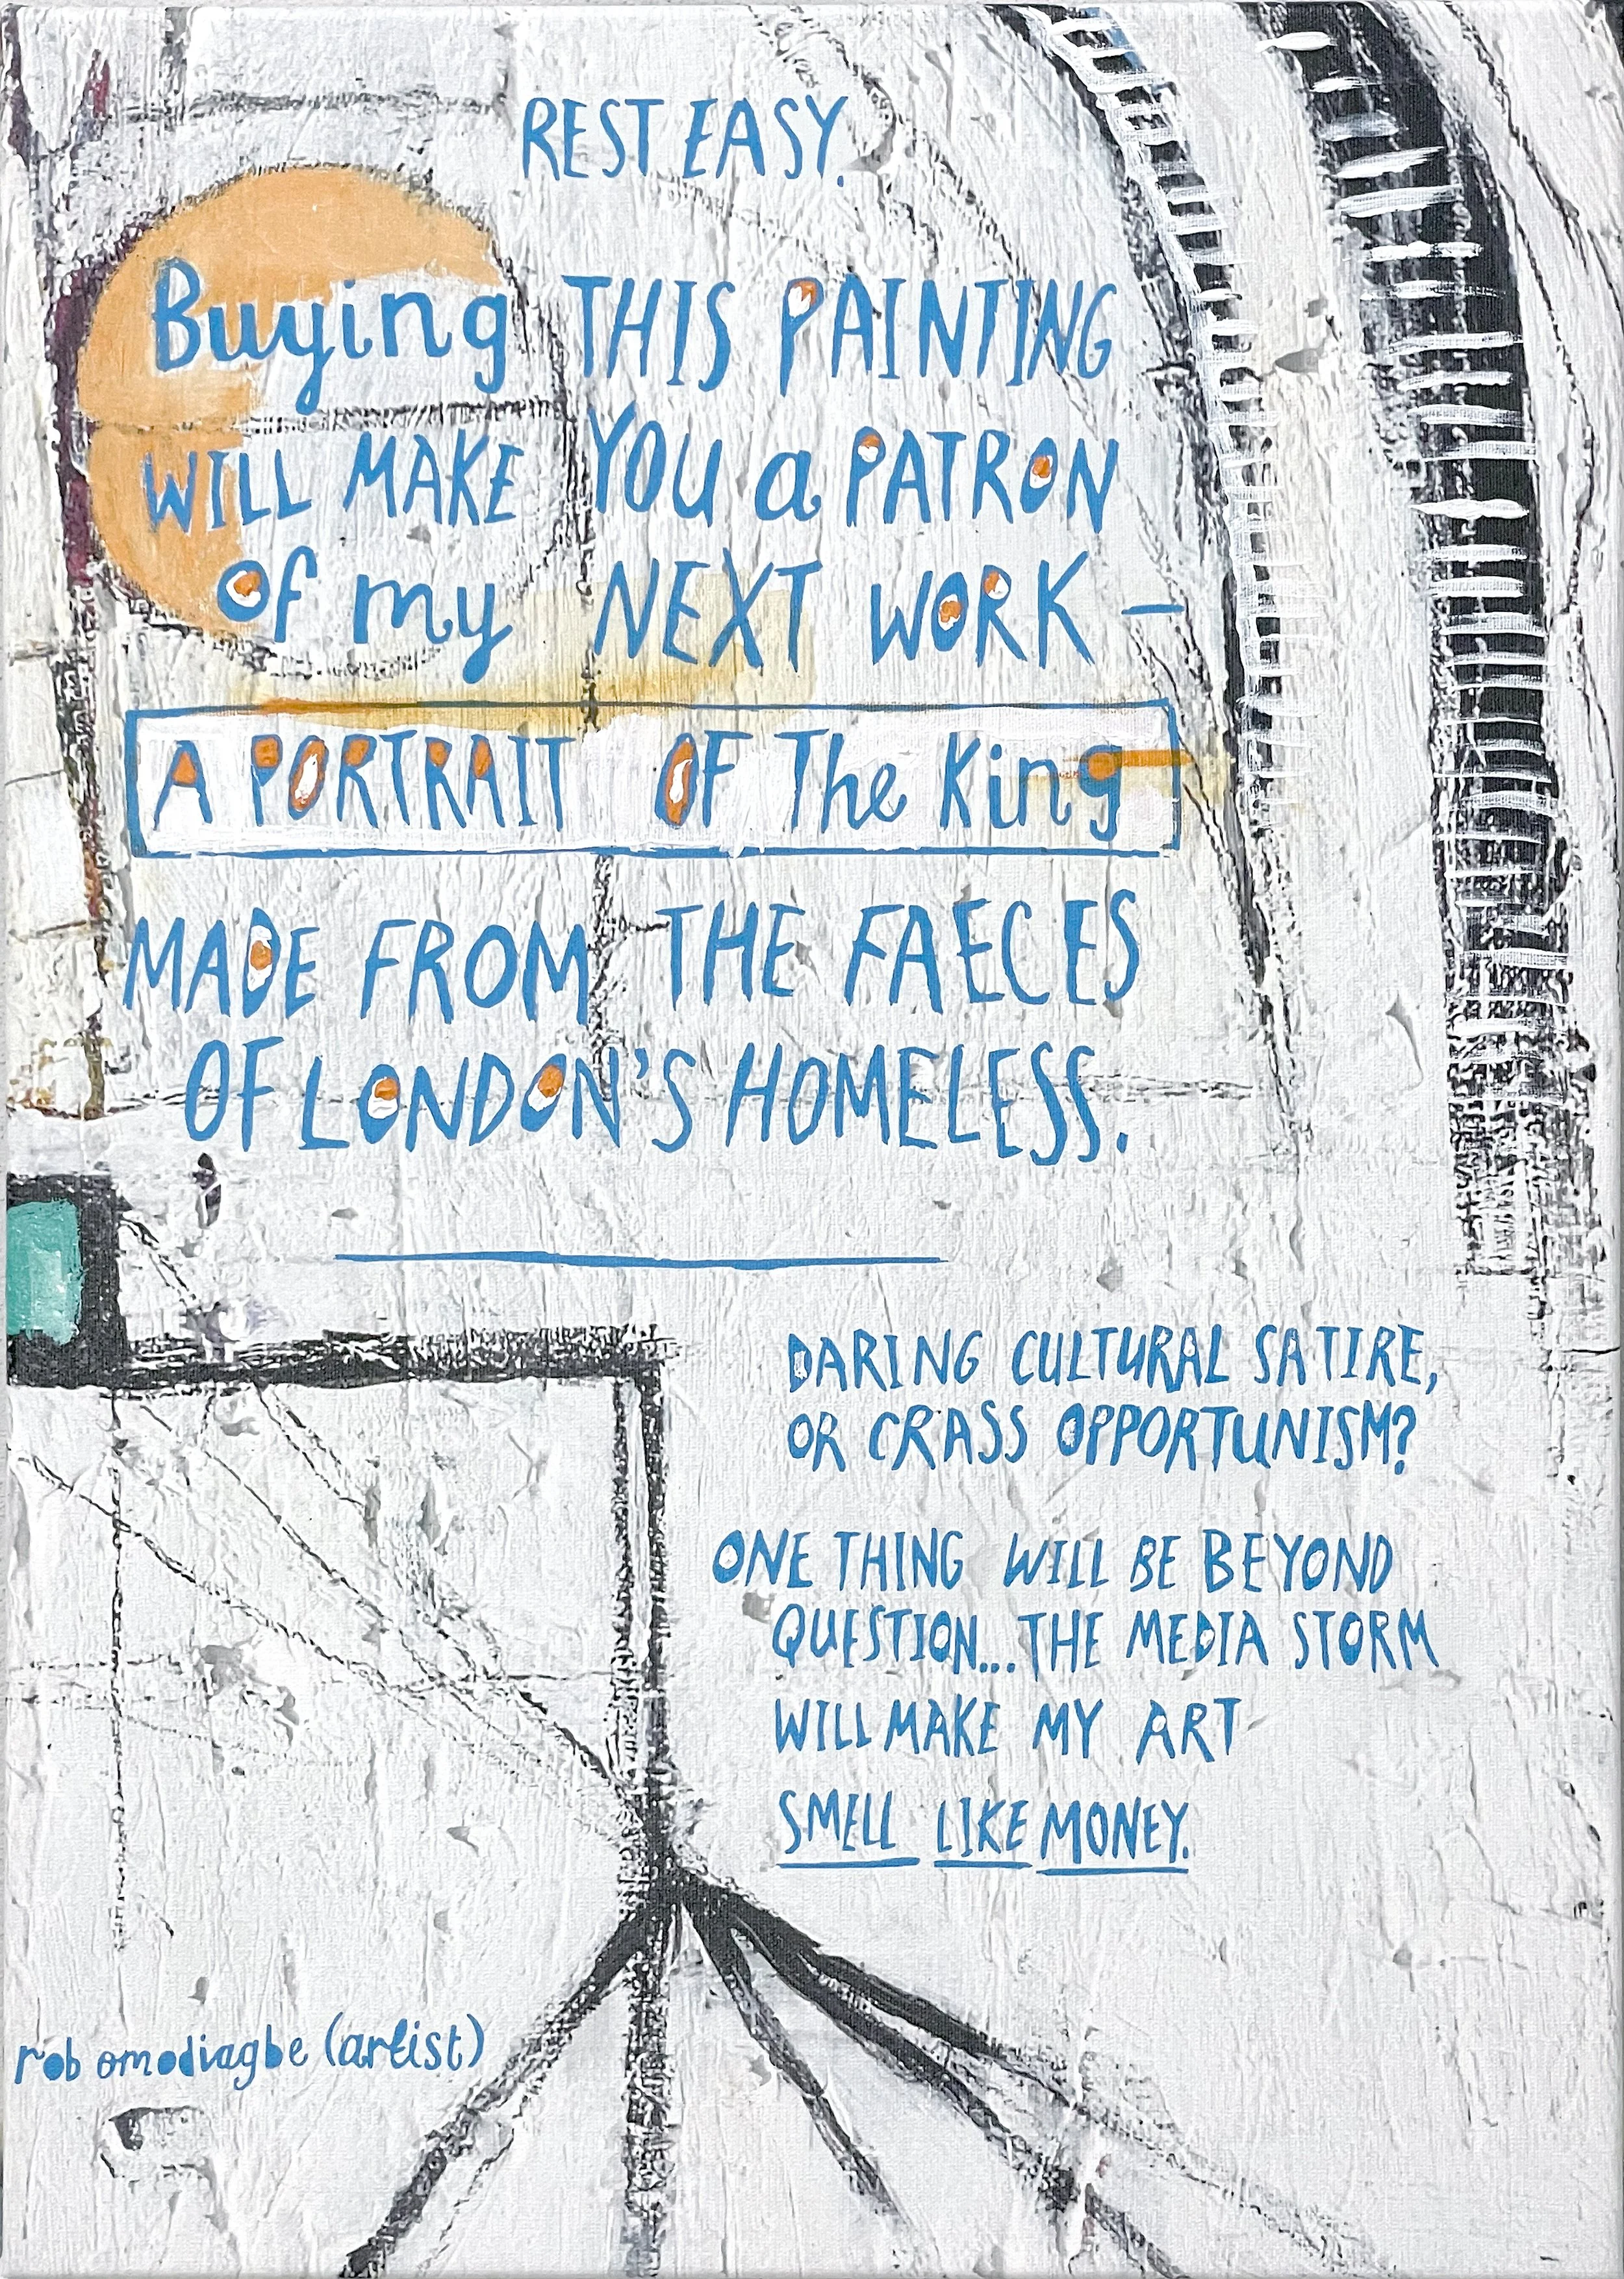 REST EASY.
Buying THIS PAINTING
WILL MAKE YOU a PATRON
of my NEXT WORK –
A PORTRAIT OF The King
MADE FROM THE FAECES
OF LONDON'S HOMELESS.
DARING CULTURAL SATIRE,
OR CRASS OPPORTUNISM?
ONE THING WILL BE BEYOND
QUESTION... THE MEDIA STORM
WILL MAKE MY ART
SMELL LIKE MONEY.
rob omodiagbe (artist)